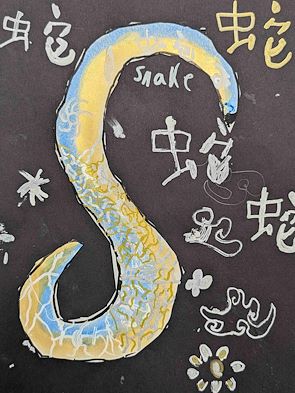 蛇
蛇
snake
蛇
蛇